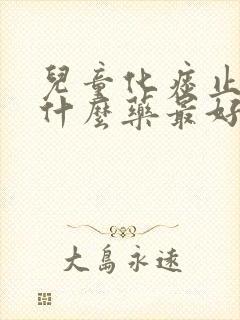 兒童化痰止
什麼藥最好
大島永遠